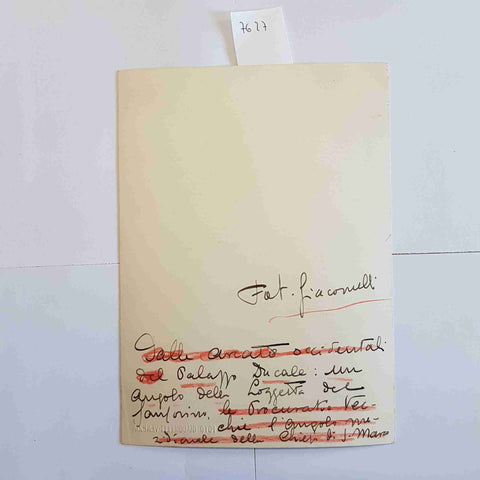 7627
Fot. Giacomelli
Dalle arcate occidentali
del Palazzo Ducale: un
angolo della Loggetta del
Sansovino, le Procuratie Vec-
chie e l'angolo me-
ridionale della Chiesa di S. Marco